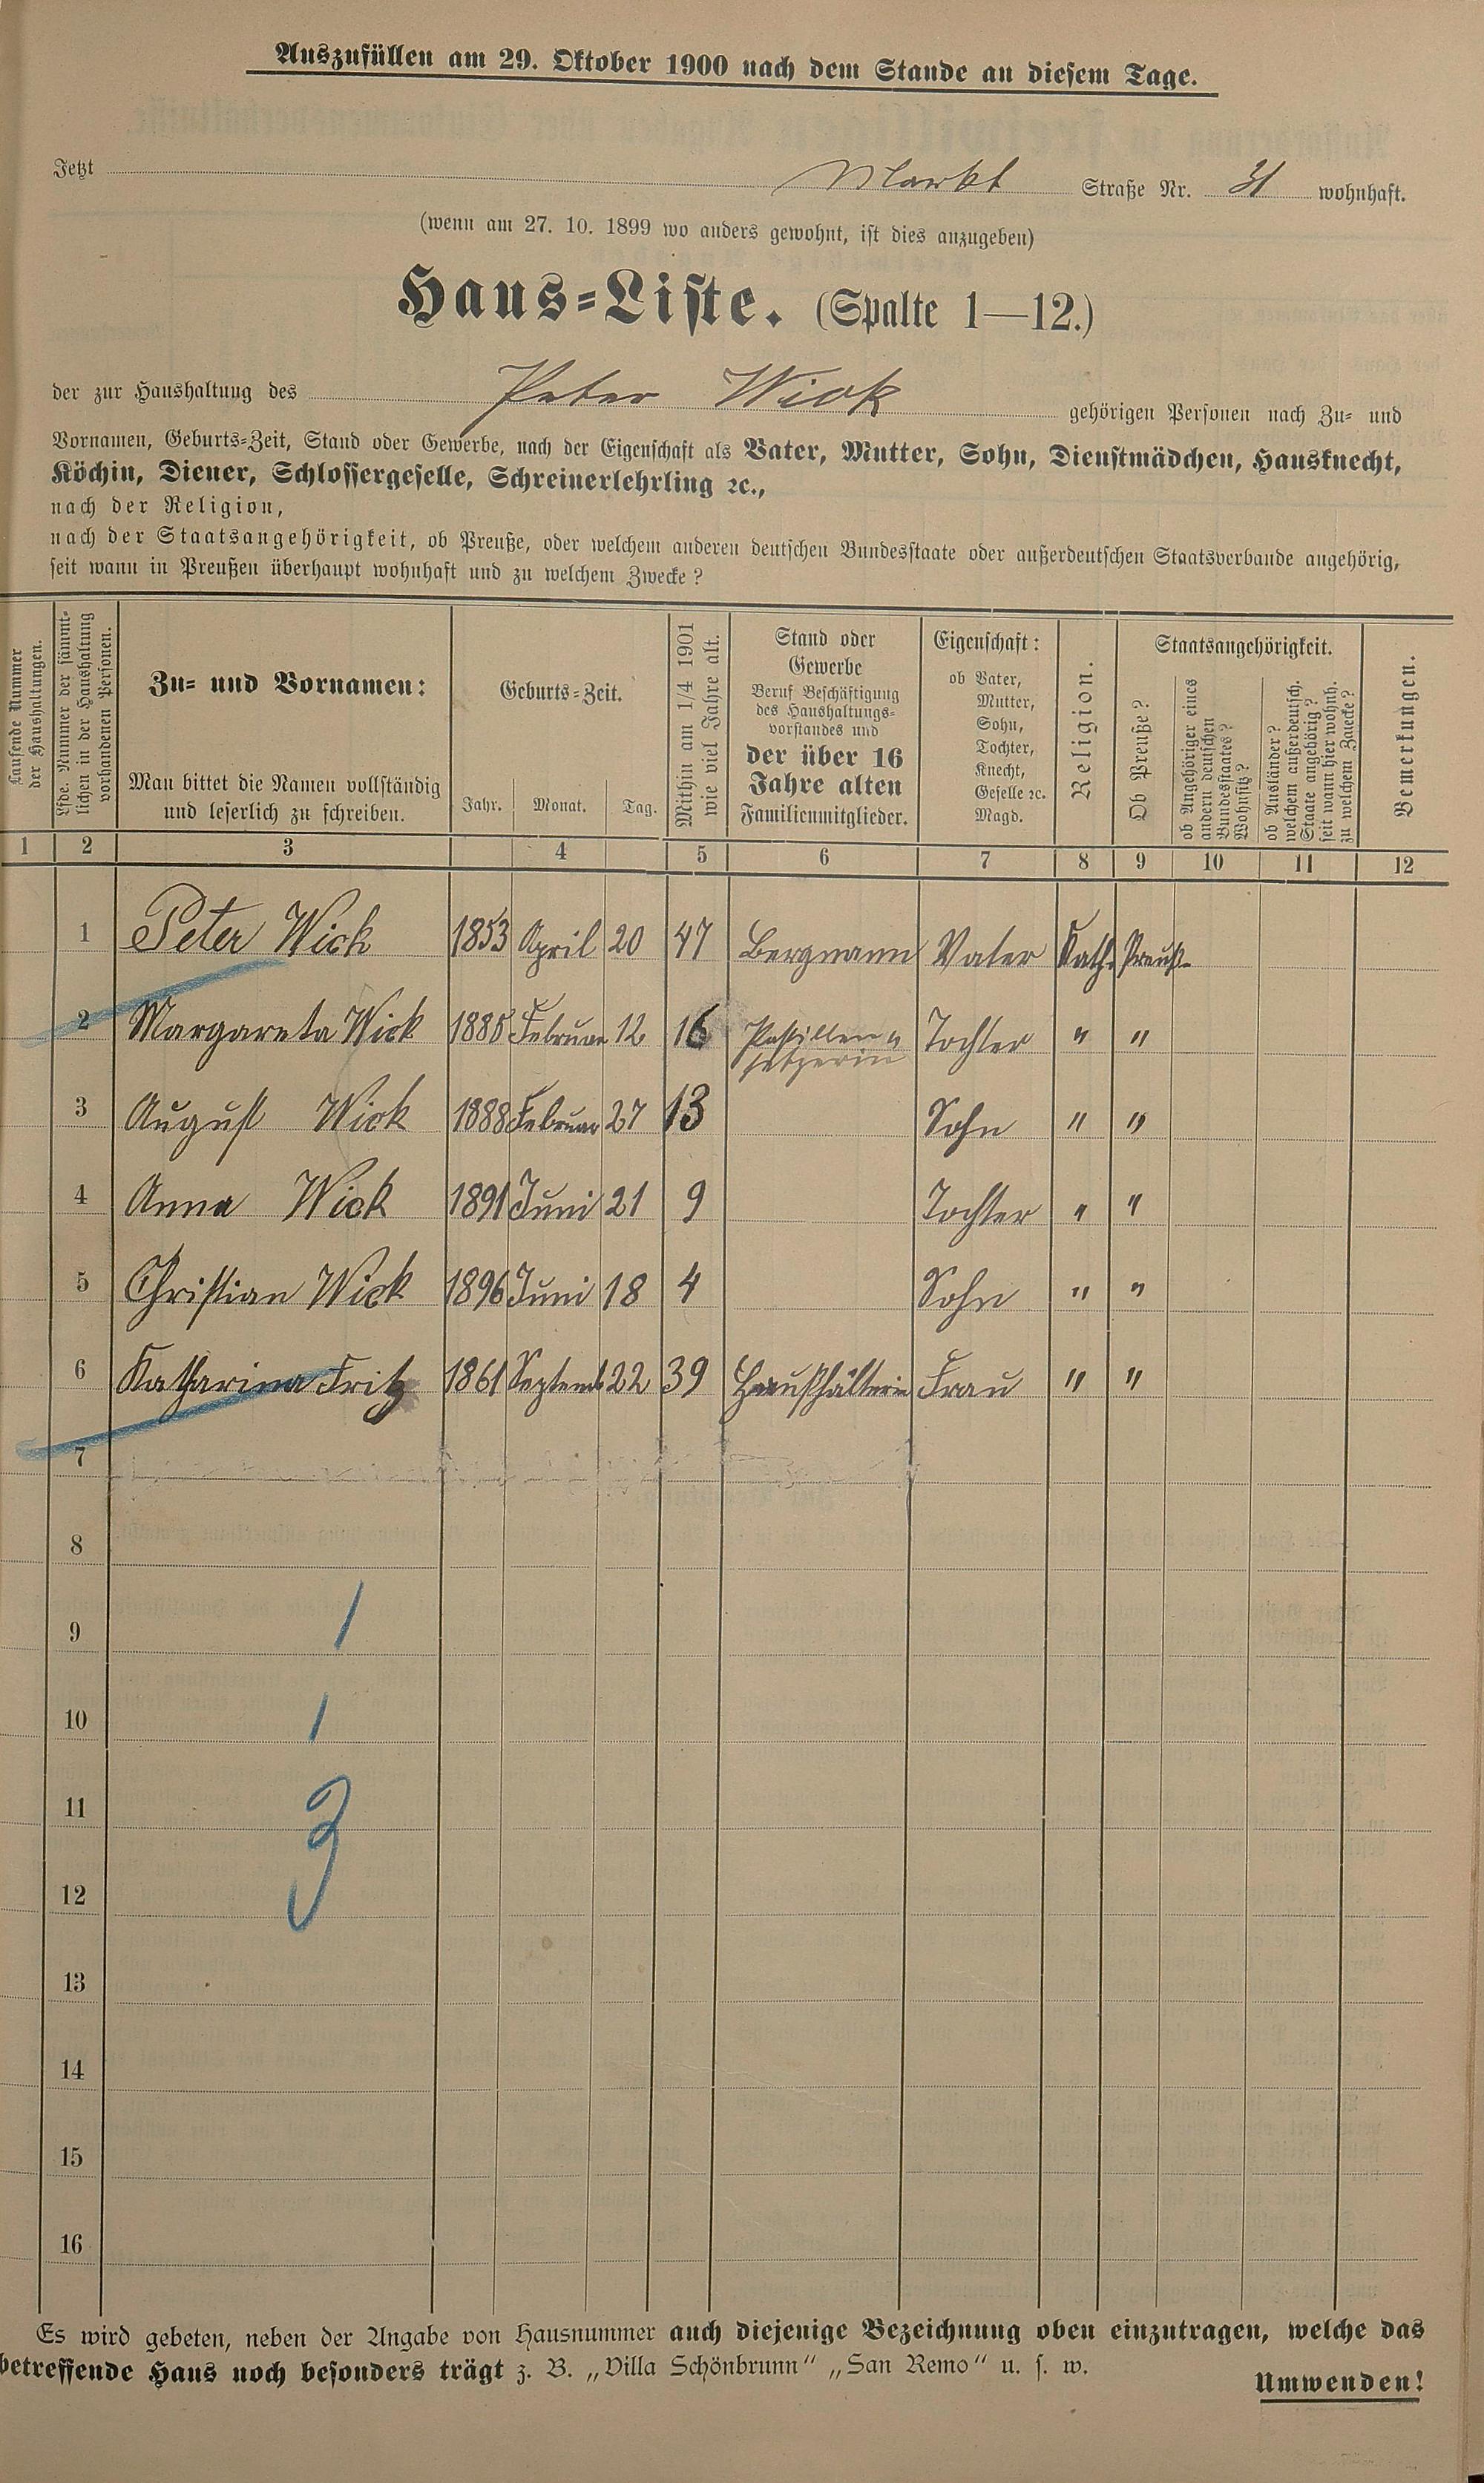 Auszufüllen am 29. Oktober 1900 nach dem Stande an diesem Tage.
Jetzt Markt Straße Nr. 31 wohnhaft.
(wenn am 27. 10. 1899 wo anders gewohnt, ist dies anzugeben)
Haus-Liste. (Spalte 1—12.)
der zur Haushaltung des Peter Wick gehörigen Personen nach Zu- und
Vornamen, Geburts-Zeit, Stand oder Gewerbe, nach der Eigenschaft als Vater, Mutter, Sohn, Dienstmädchen, Hausknecht,
Köchin, Diener, Schlossergeselle, Schreinerlehrling ꝛc.,
nach der Religion,
nach der Staatsangehörigkeit, ob Preuße, oder welchem anderen deutschen Bundesstaate oder außerdeutschen Staatsverbande angehörig,
seit wann in Preußen überhaupt wohnhaft und zu welchem Zwecke?
Laufende Nummer
der Haushaltungen.
Lfde. Nummer der sämmt-
lichen in der Haushaltung
vorhandenen Personen.
Zu- und Vornamen:
Man bittet die Namen vollständig
und leserlich zu schreiben.
Geburts-Zeit.
Jahr. Monat. Tag.
Mithin am 1/4 1901
wie viel Jahre alt.
Stand oder
Gewerbe
Beruf Beschäftigung
des Haushaltungs-
vorstandes und
der über 16
Jahre alten
Familienmitglieder.
Eigenschaft:
ob Vater,
Mutter,
Sohn,
Tochter,
Knecht,
Geselle ꝛc.
Magd.
Religion.
Staatsangehörigkeit.
Ob Preuße?
ob Angehöriger eines
andern deutschen
Bundesstaates?
Wohnsitz?
ob Ausländer?
welchem außerdeutsch.
Staate angehörig?
seit wann hier wohnh.
zu welchem Zwecke?
Bemerkungen.
1 2 3 4 5 6 7 8 9 10 11 12
1 Peter Wick 1853 April 20 47 Bergmann Vater Kath. Preuß.
2 Margareta Wick 1885 Februar 12 16 Pastillen" Tochter " "
setzerin
3 August Wick 1888 Februar 27 13 Sohn " "
4 Anna Wick 1891 Juni 21 9 Tochter " "
5 Christian Wick 1896 Juni 18 4 Sohn " "
6 Katharina Fritz 1861 Septemb 22 39 Haußhälterin Frau " "
7
8
9 1
10 1
11 3
12
13
14
15
16
Es wird gebeten, neben der Angabe von Hausnummer auch diejenige Bezeichnung oben einzutragen, welche das
betreffende Haus noch besonders trägt z. B. „Villa Schönbrunn“ „San Remo“ u. s. w.
Umwenden!